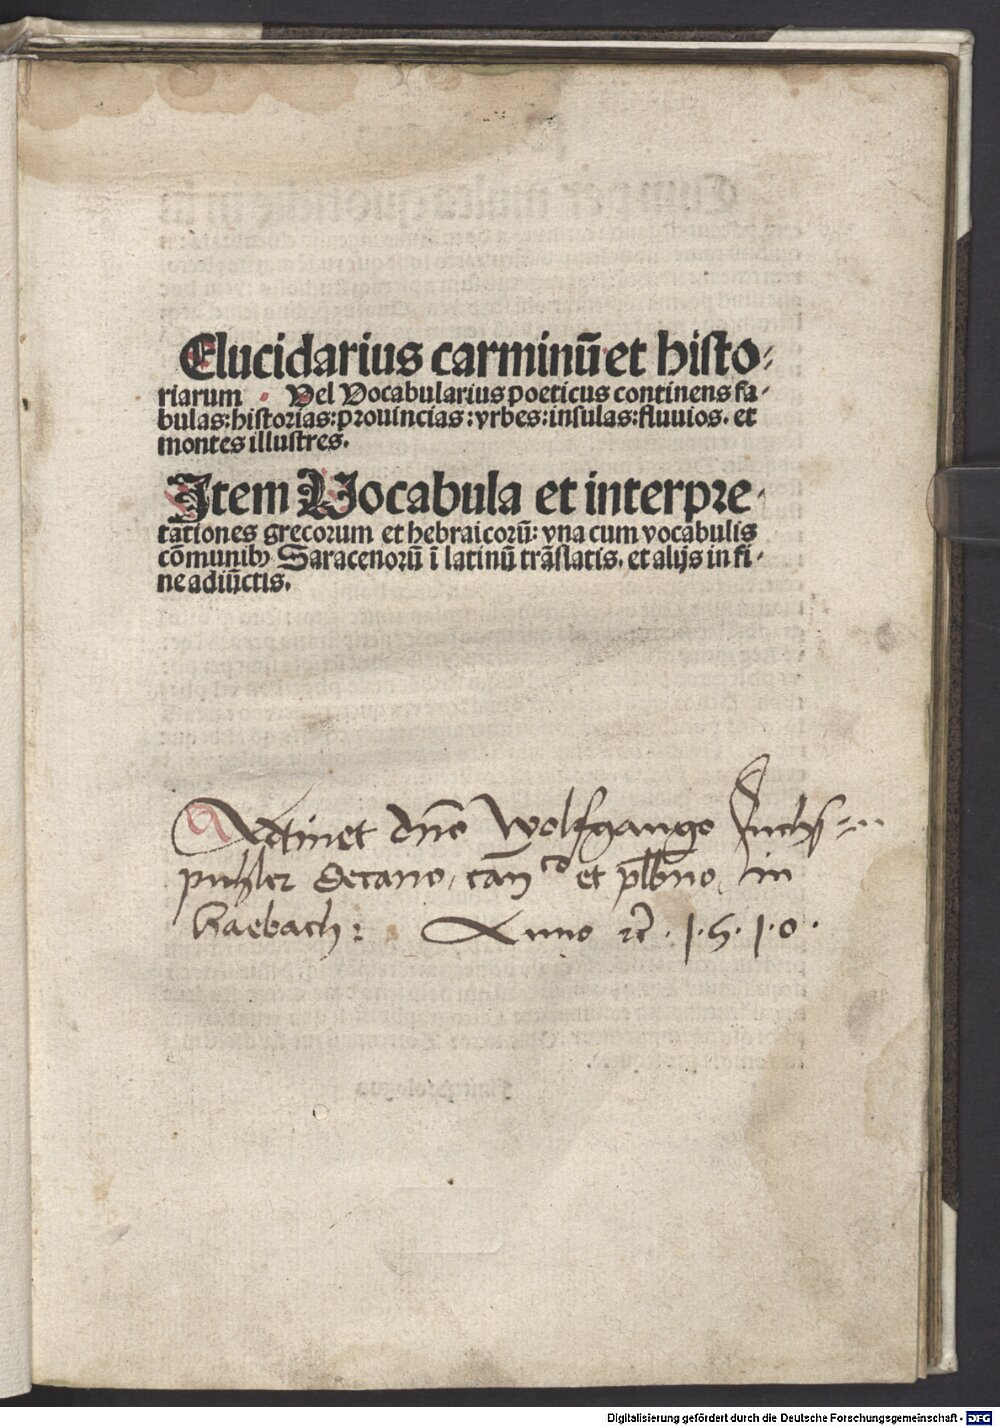 Elucidarius carminū et histo-
riarum Vel Vocabularius poeticus continens fa-
bulas: historias: prouincias: vrbes: insulas: fluuios. et
montes illustres.
Item Vocabula et interpre-
tationes grecorum et hebraicorū: vna cum vocabulis
cōmunibꝫ Saracenorū ī latinū trāslatis. et alijs in fi-
ne adiūctis.
Attinet dn̄o Wolfgango
decano, et in
Anno 1510.
Digitalisierung gefördert durch die Deutsche Forschungsgemeinschaft - DFG